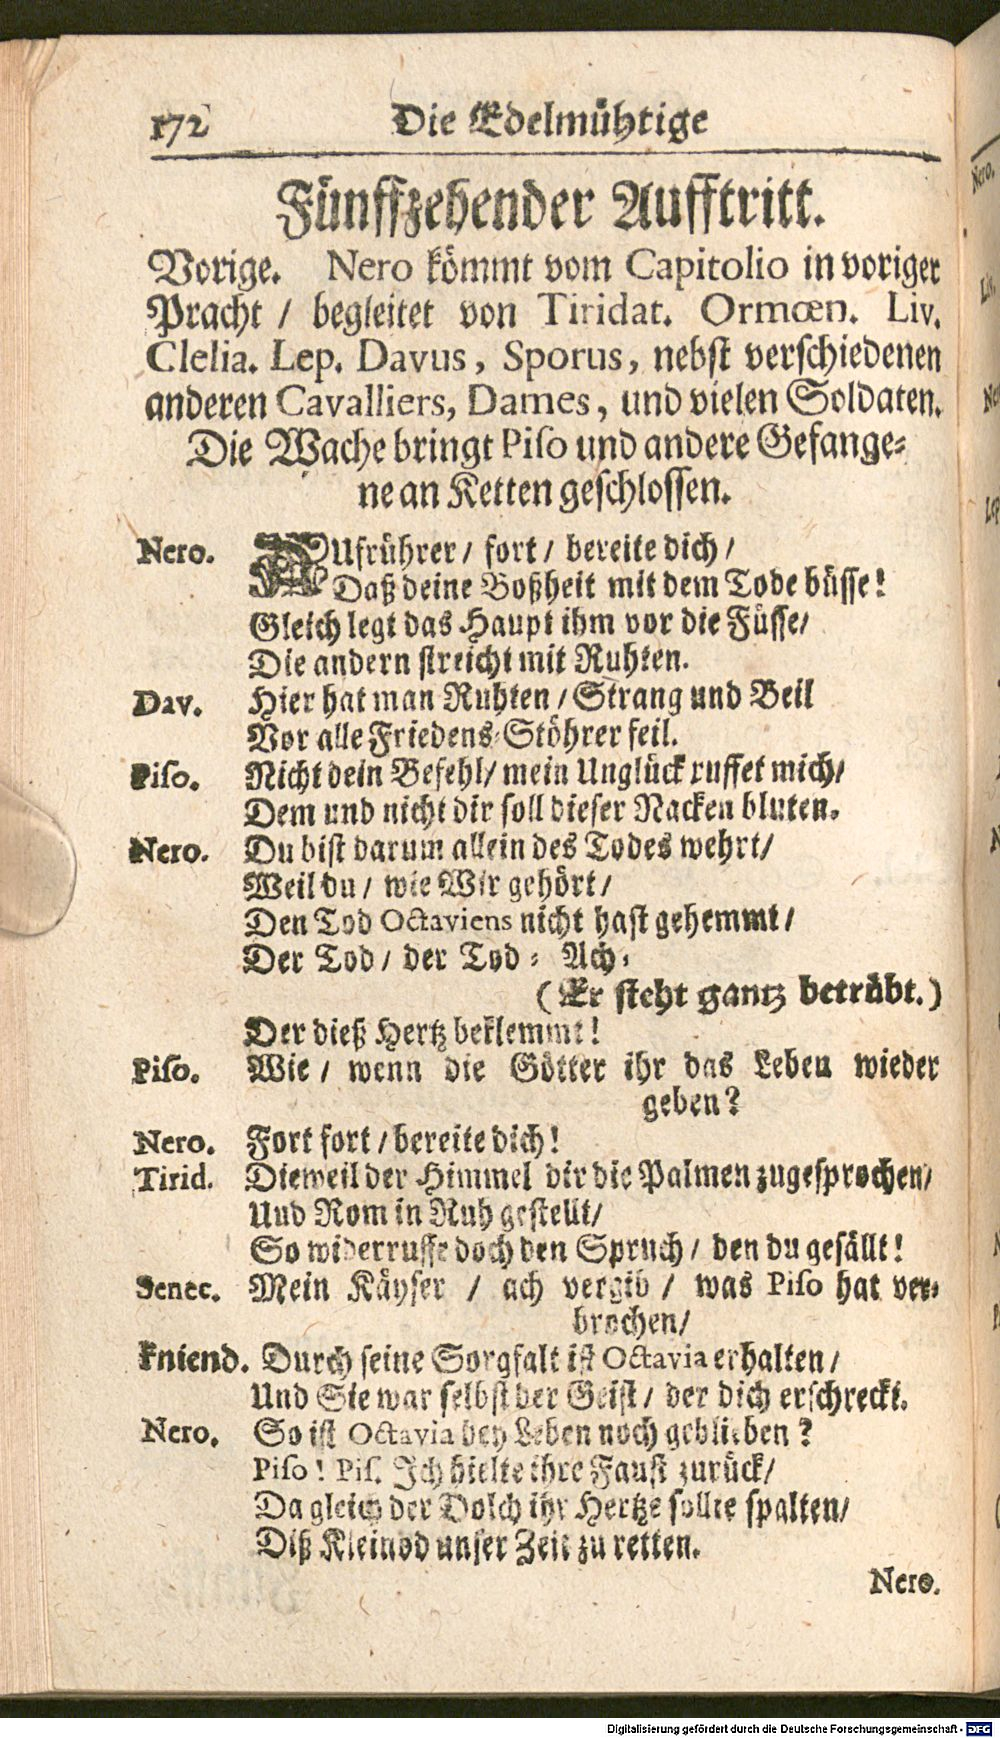 172 Die Edelmühtige
Fünffzehender Aufftritt.
Vorige. Nero kömmt vom Capitolio in voriger
Pracht / begleitet von Tiridat. Ormœn. Liv.
Clelia. Lep. Davus, Sporus, nebst verschiedenen
anderen Cavalliers, Dames, und vielen Soldaten.
Die Wache bringt Piso und andere Gefange-
ne an Ketten geschlossen.
Nero. AUfrührer / fort / bereite dich /
Daß deine Boßheit mit dem Tode büsse!
Gleich legt das Haupt ihm vor die Füsse/
Die andern streicht mit Ruhten.
Dav. Hier hat man Ruhten / Strang und Beil
Vor alle Friedens-Stöhrer feil.
Piso. Nicht dein Befehl/ mein Unglück ruffet mich/
Dem und nicht dir soll dieser Nacken bluten.
Nero. Du bist darum allein des Todes wehrt/
Weil du / wie Wir gehört /
Den Tod Octaviens nicht hast gehemmt /
Der Tod / der Tod - Ach -
(Er steht gantz betrübt.)
Der dieß Hertz beklemmt!
Piso. Wie / wenn die Götter ihr das Leben wieder
geben?
Nero. Fort fort / bereite dich!
Tirid. Dieweil der Himmel dir die Palmen zugesprochen/
Und Rom in Ruh gestellt/
So widerruffe doch den Spruch / den du gefällt!
Senec. Mein Käyser / ach vergib / was Piso hat ver-
brochen/
kniend. Durch seine Sorgfalt ist Octavia erhalten /
Und Sie war selbst der Geist / der dich erschreckt.
Nero. So ist Octavia bey Leben noch geblieben?
Piso! Pis. Ich hielte ihre Faust zurück/
Da gleich der Dolch ihr Hertze sollte spalten/
Diß Kleinod unser Zeit zu retten.
Nero.
Digitalisierung gefördert durch die Deutsche Forschungsgemeinschaft - DFG